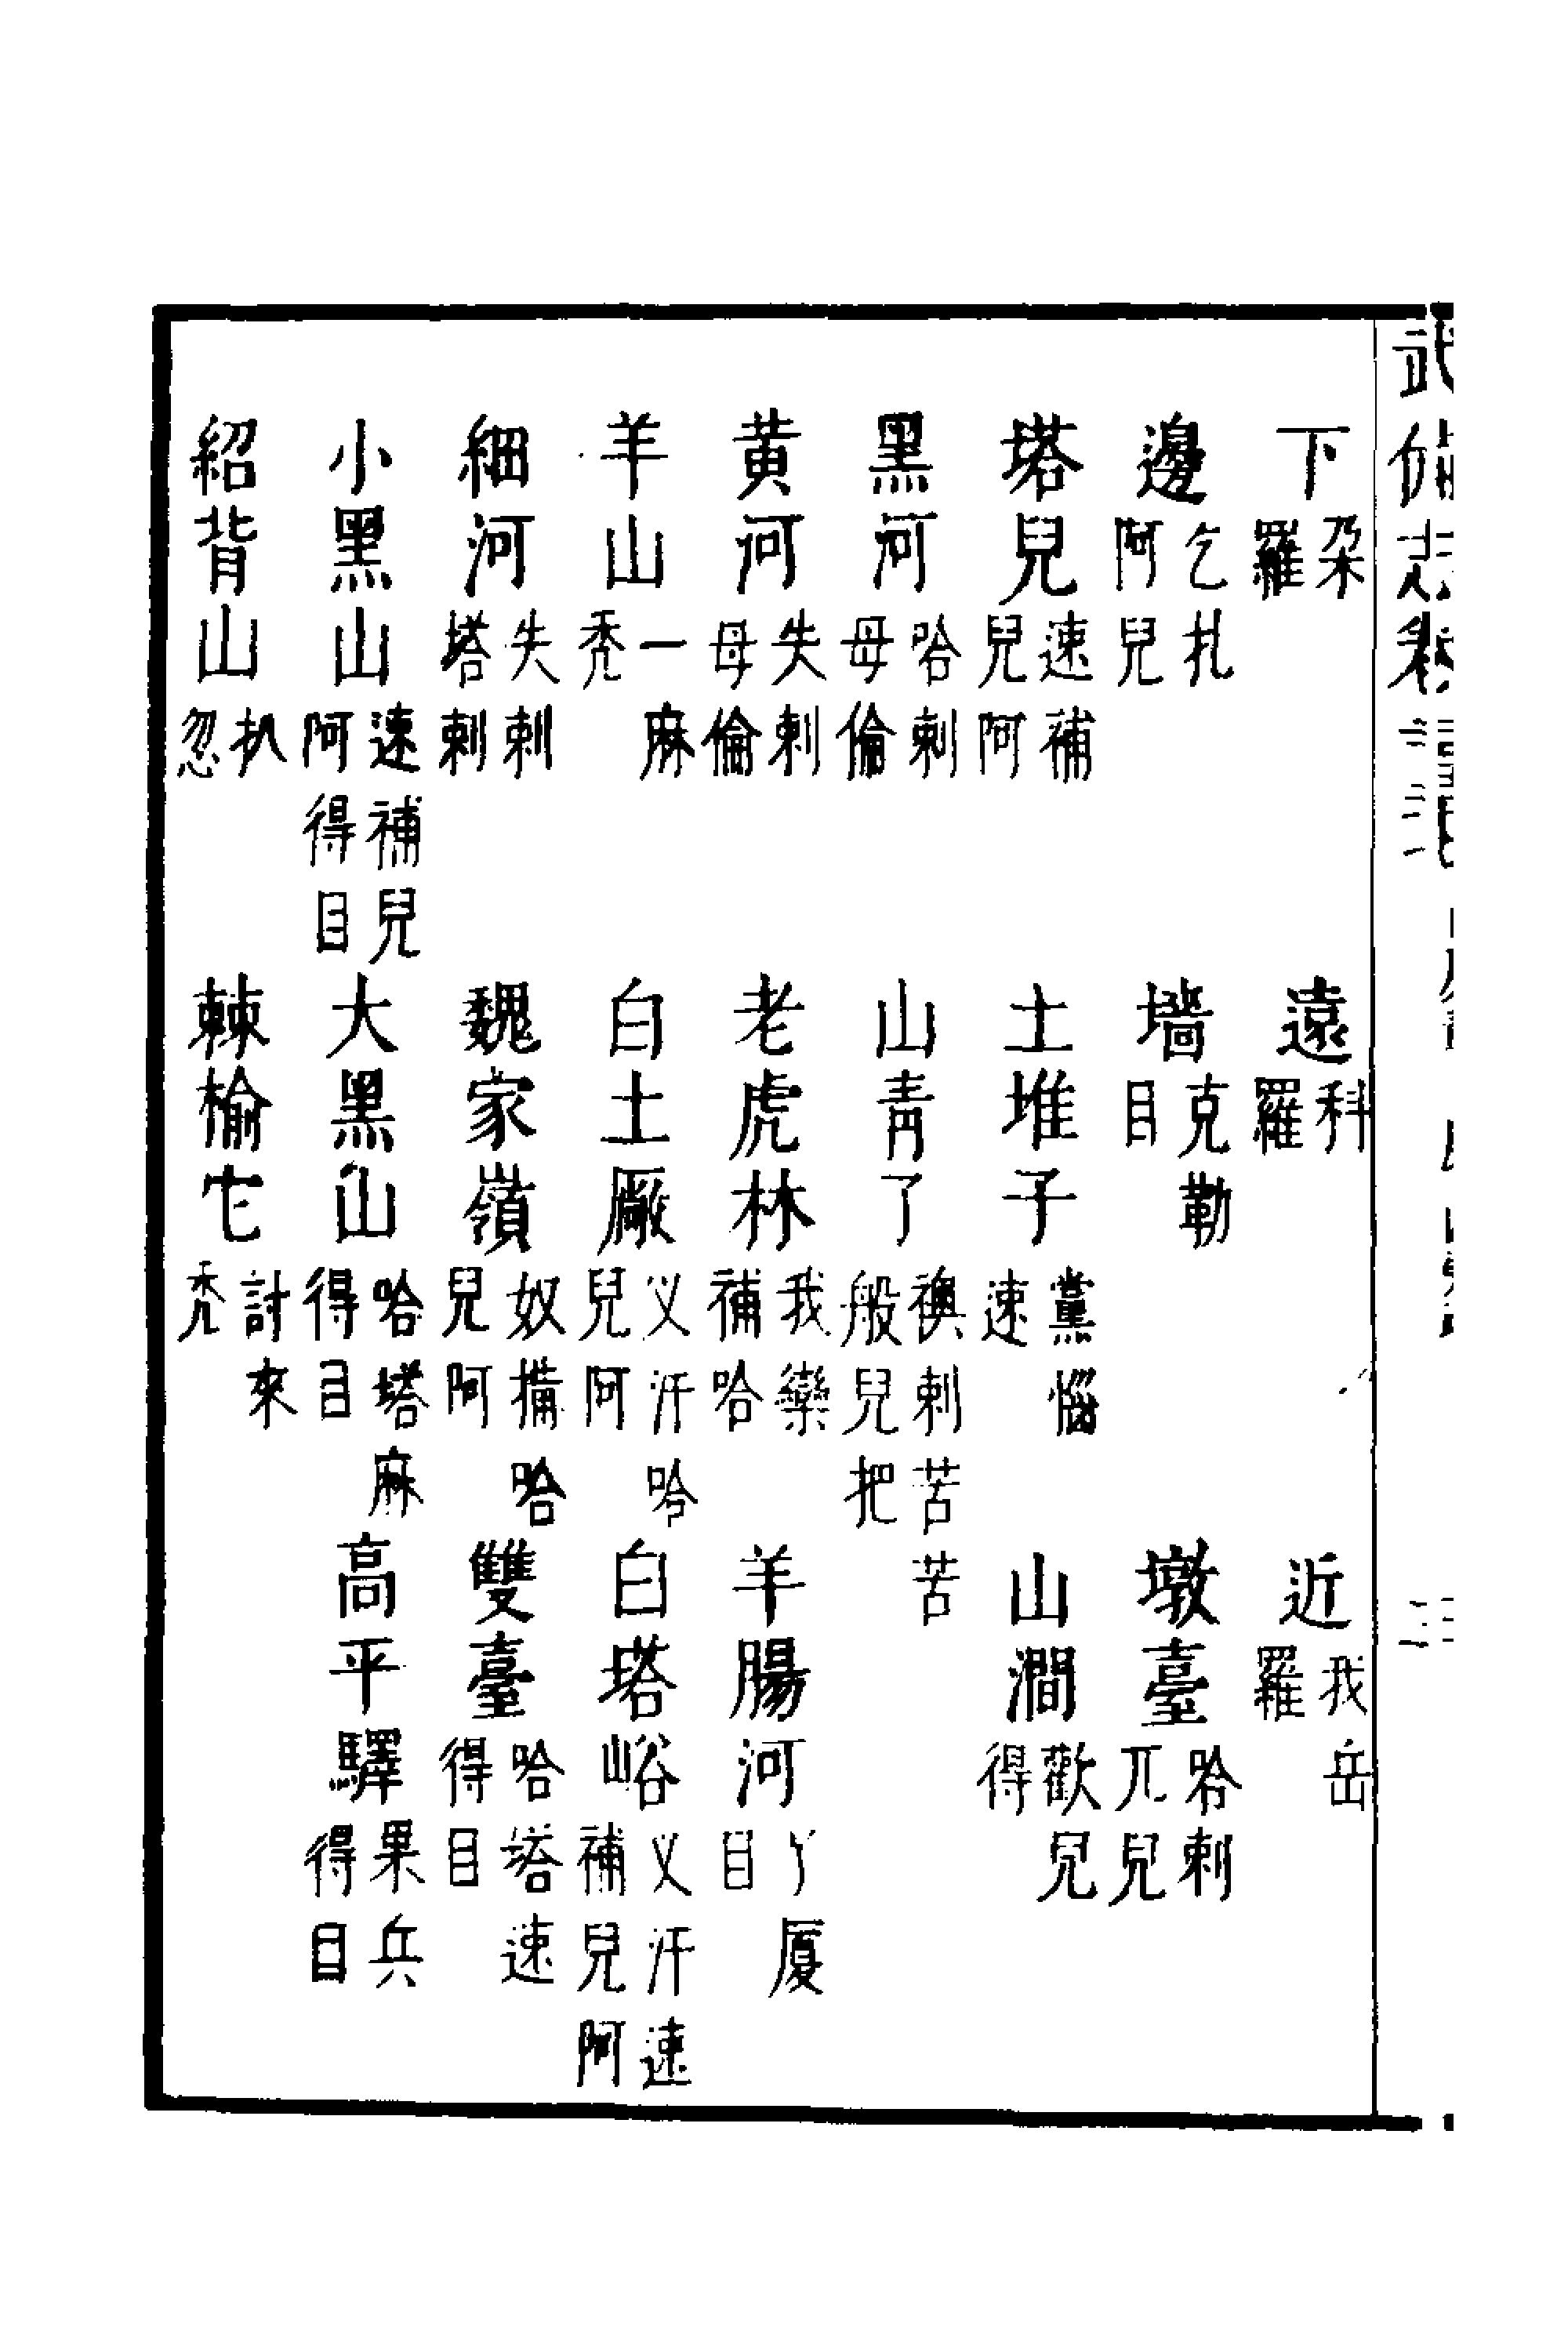 下 朶羅 遠 科羅 近 我岳羅
邊 乞扎阿兒 墻 克勒目 墩臺 哈剌兀兒
塔兒 速補兒阿 土堆子 黨惱速 山澗 歡兒得
黑河 哈剌母倫 山青了 襖剌苦苦般兒把
黃河 失剌母倫 老虎林 我欒補哈 羊腸河 丫厦目
羊山 一麻禿 白土厰 义汗哈兒阿 白塔峪 义汗速補兒阿
細河 失剌塔剌 魏家嶺 奴擕哈兒阿 雙臺 哈塔速得目
小黑山 速補兒阿得目 大黑山 哈塔麻得目 高平驛 果兵得目
紹背山 扒忽 棘榆屯 討來禿
武備志卷